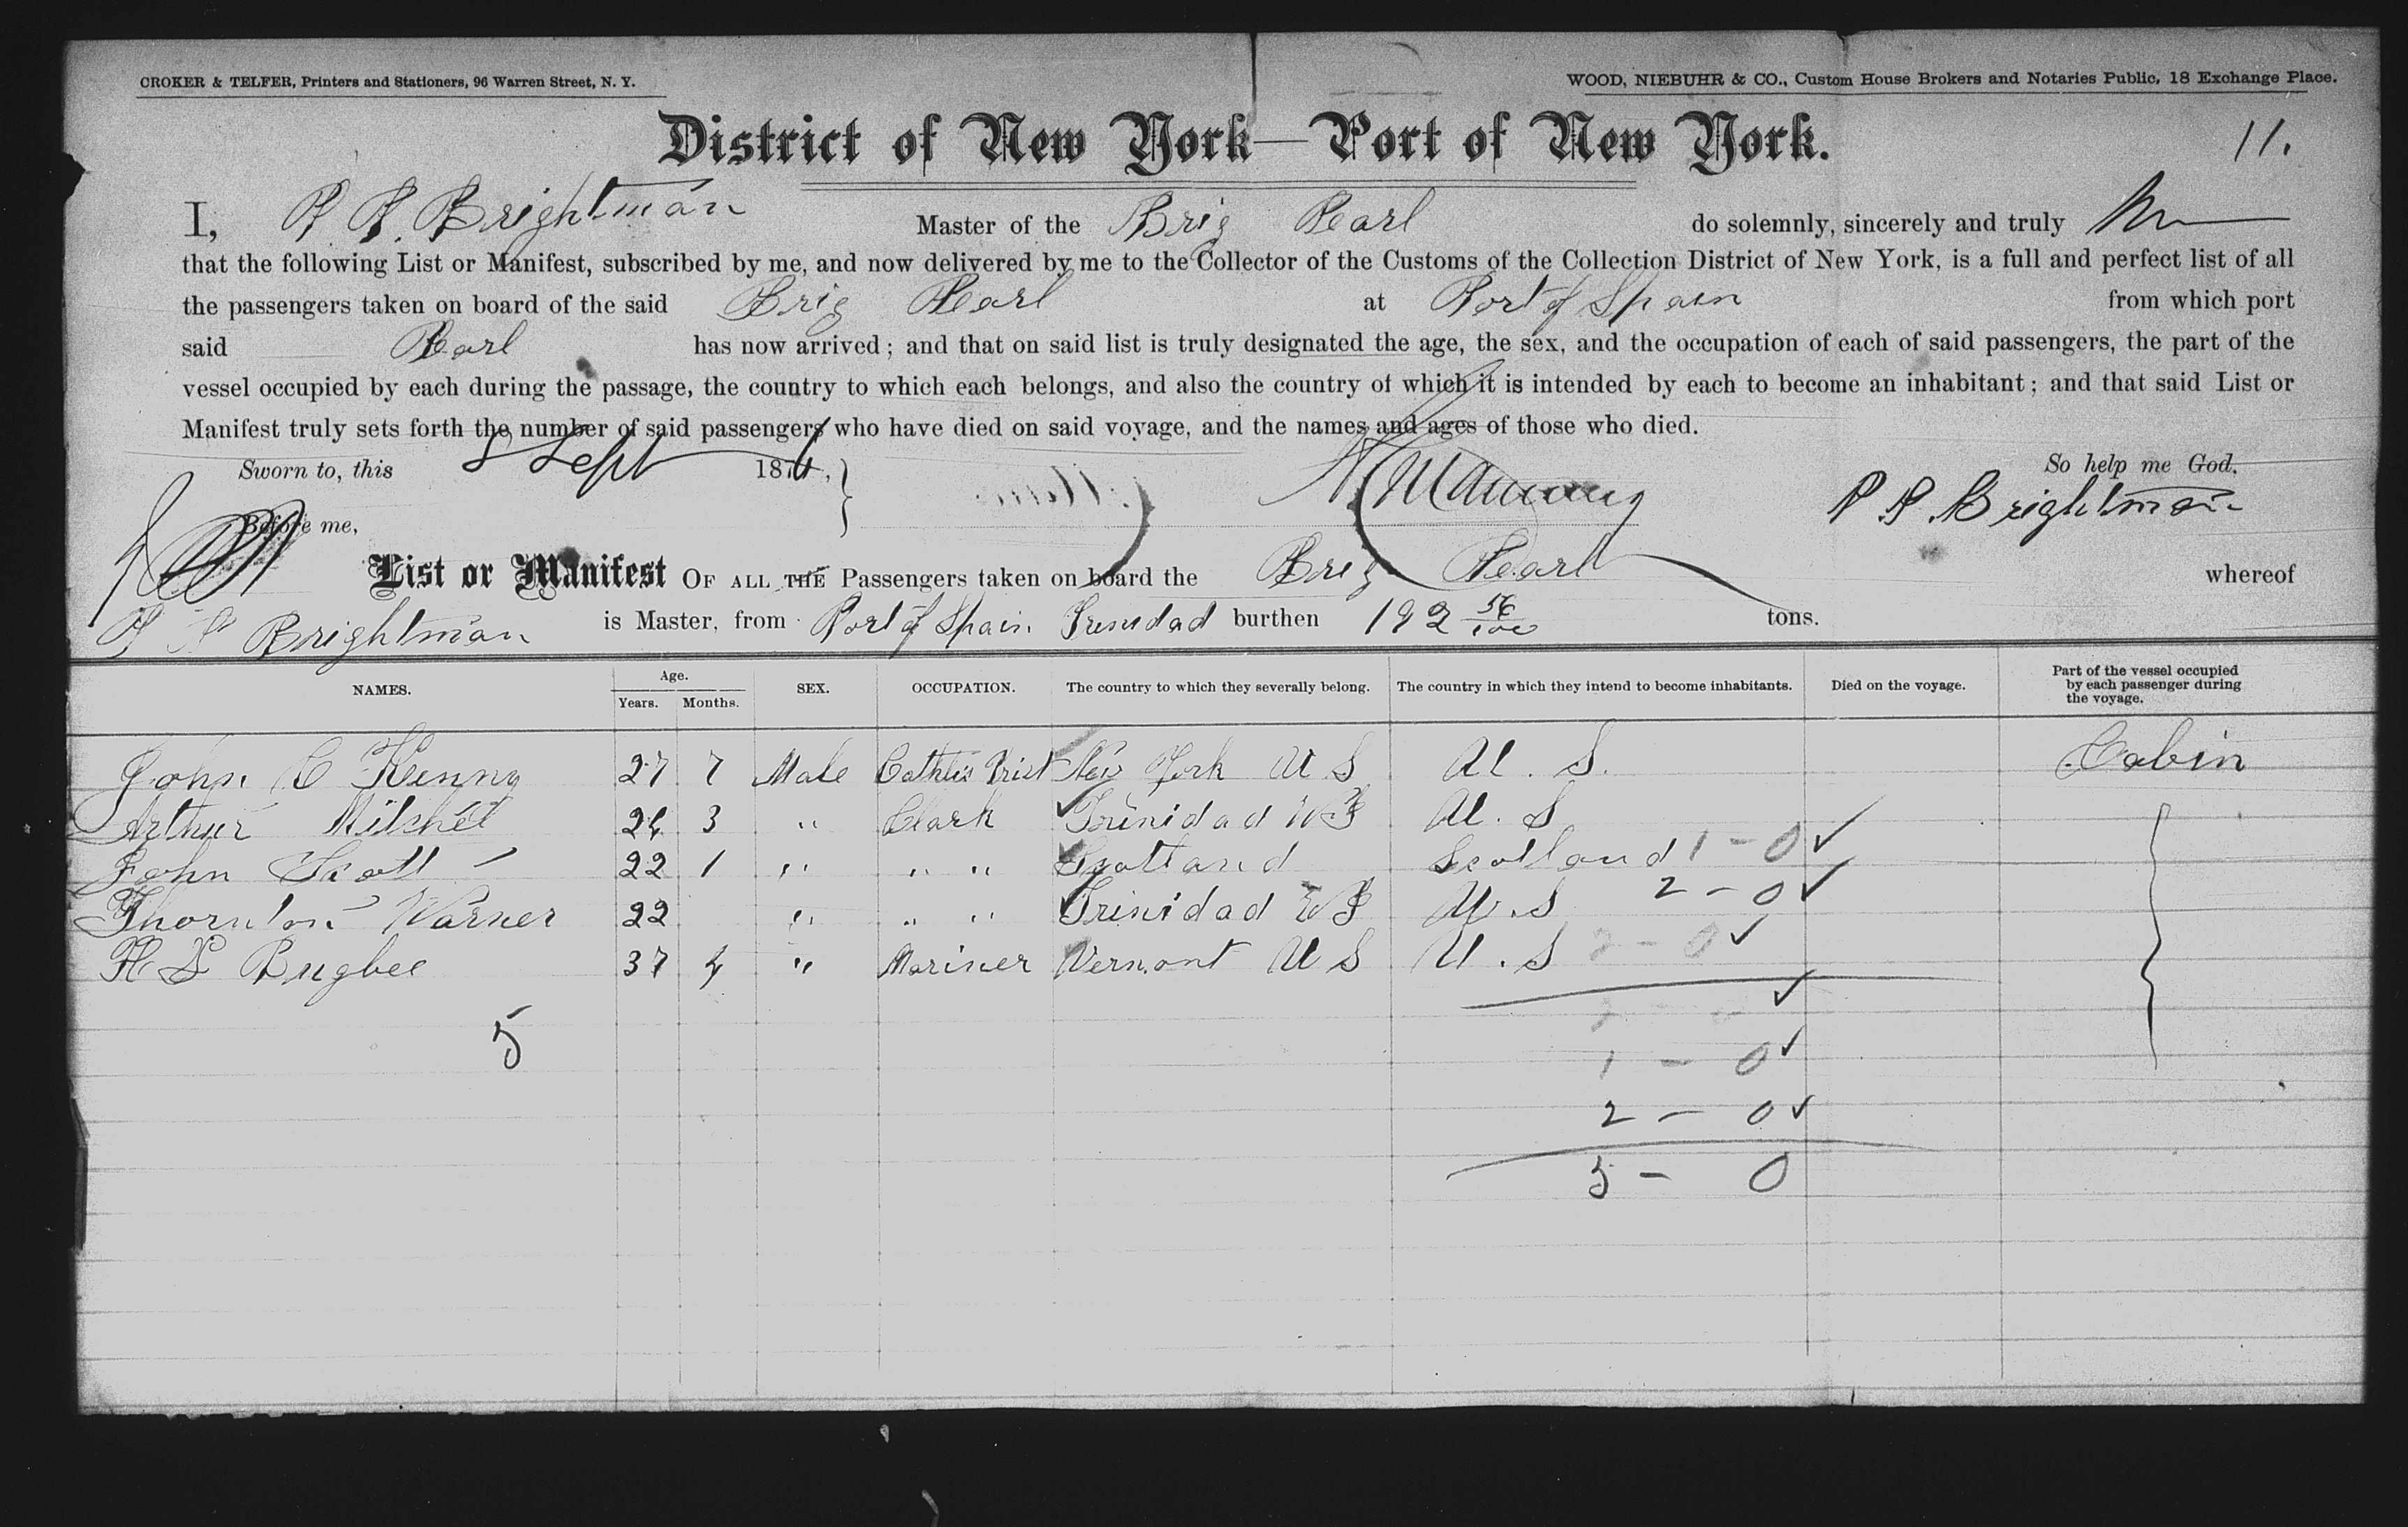 CROKER & TELFER, Printers and Stationers, 96 Warren Street, N. Y.
WOOD, NIEBUHR & CO., Custom House Brokers and Notaries Public, 18 Exchange Place.
District of New York—Port of New York.
11.
I, P P. Brightman Master of the Brig Pearl do solemnly, sincerely and truly
that the following List or Manifest, subscribed by me, and now delivered by me to the Collector of the Customs of the Collection District of New York, is a full and perfect list of all
the passengers taken on board of the said Brig Pearl at Port of Spain from which port
said Pearl has now arrived; and that on said list is truly designated the age, the sex, and the occupation of each of said passengers, the part of the
vessel occupied by each during the passage, the country to which each belongs, and also the country of which it is intended by each to become an inhabitant; and that said List or
Manifest truly sets forth the number of said passengers who have died on said voyage, and the names and ages of those who died.
Sworn to, this 8 Sept 187 So help me God.
Before me, P P. Brightman
List or Manifest OF ALL THE Passengers taken on board the Brig Pearl whereof
P P Brightman is Master, from Port of Spain Trinidad burthen 192 56/100 tons.
NAMES. Age. Years. Months. SEX. OCCUPATION. The country to which they severally belong. The country in which they intend to become inhabitants. Died on the voyage. Part of the vessel occupied by each passenger during the voyage.
John C Kenny 27 7 Male Catholic Prist New York U S U. S. Cabin
Arthur Mitchel 26 3 " Clark Trinidad W I U. S
John Scott 22 1 " " " Scotland Scotland 1 - 0 ✓
Thornton Warner 22 " " " Trinidad W I U. S 2 - 0 ✓
H S Bugbee 37 4 " Mariner Vermont U S U. S 2 - 0 ✓
5
1 - 0 ✓
2 - 0 ✓
5 - 0